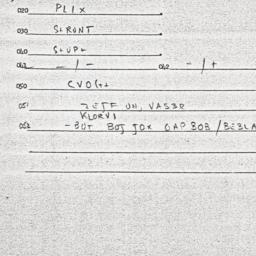 020 PLIX
030 SLRUNT
040 SLUPL
041 - / - 042 - / +
050 CVO(++
051 ZETF UN, VASBR
KLORVI
052 - BUT BOJ JOX OAP BOB / BEBLA